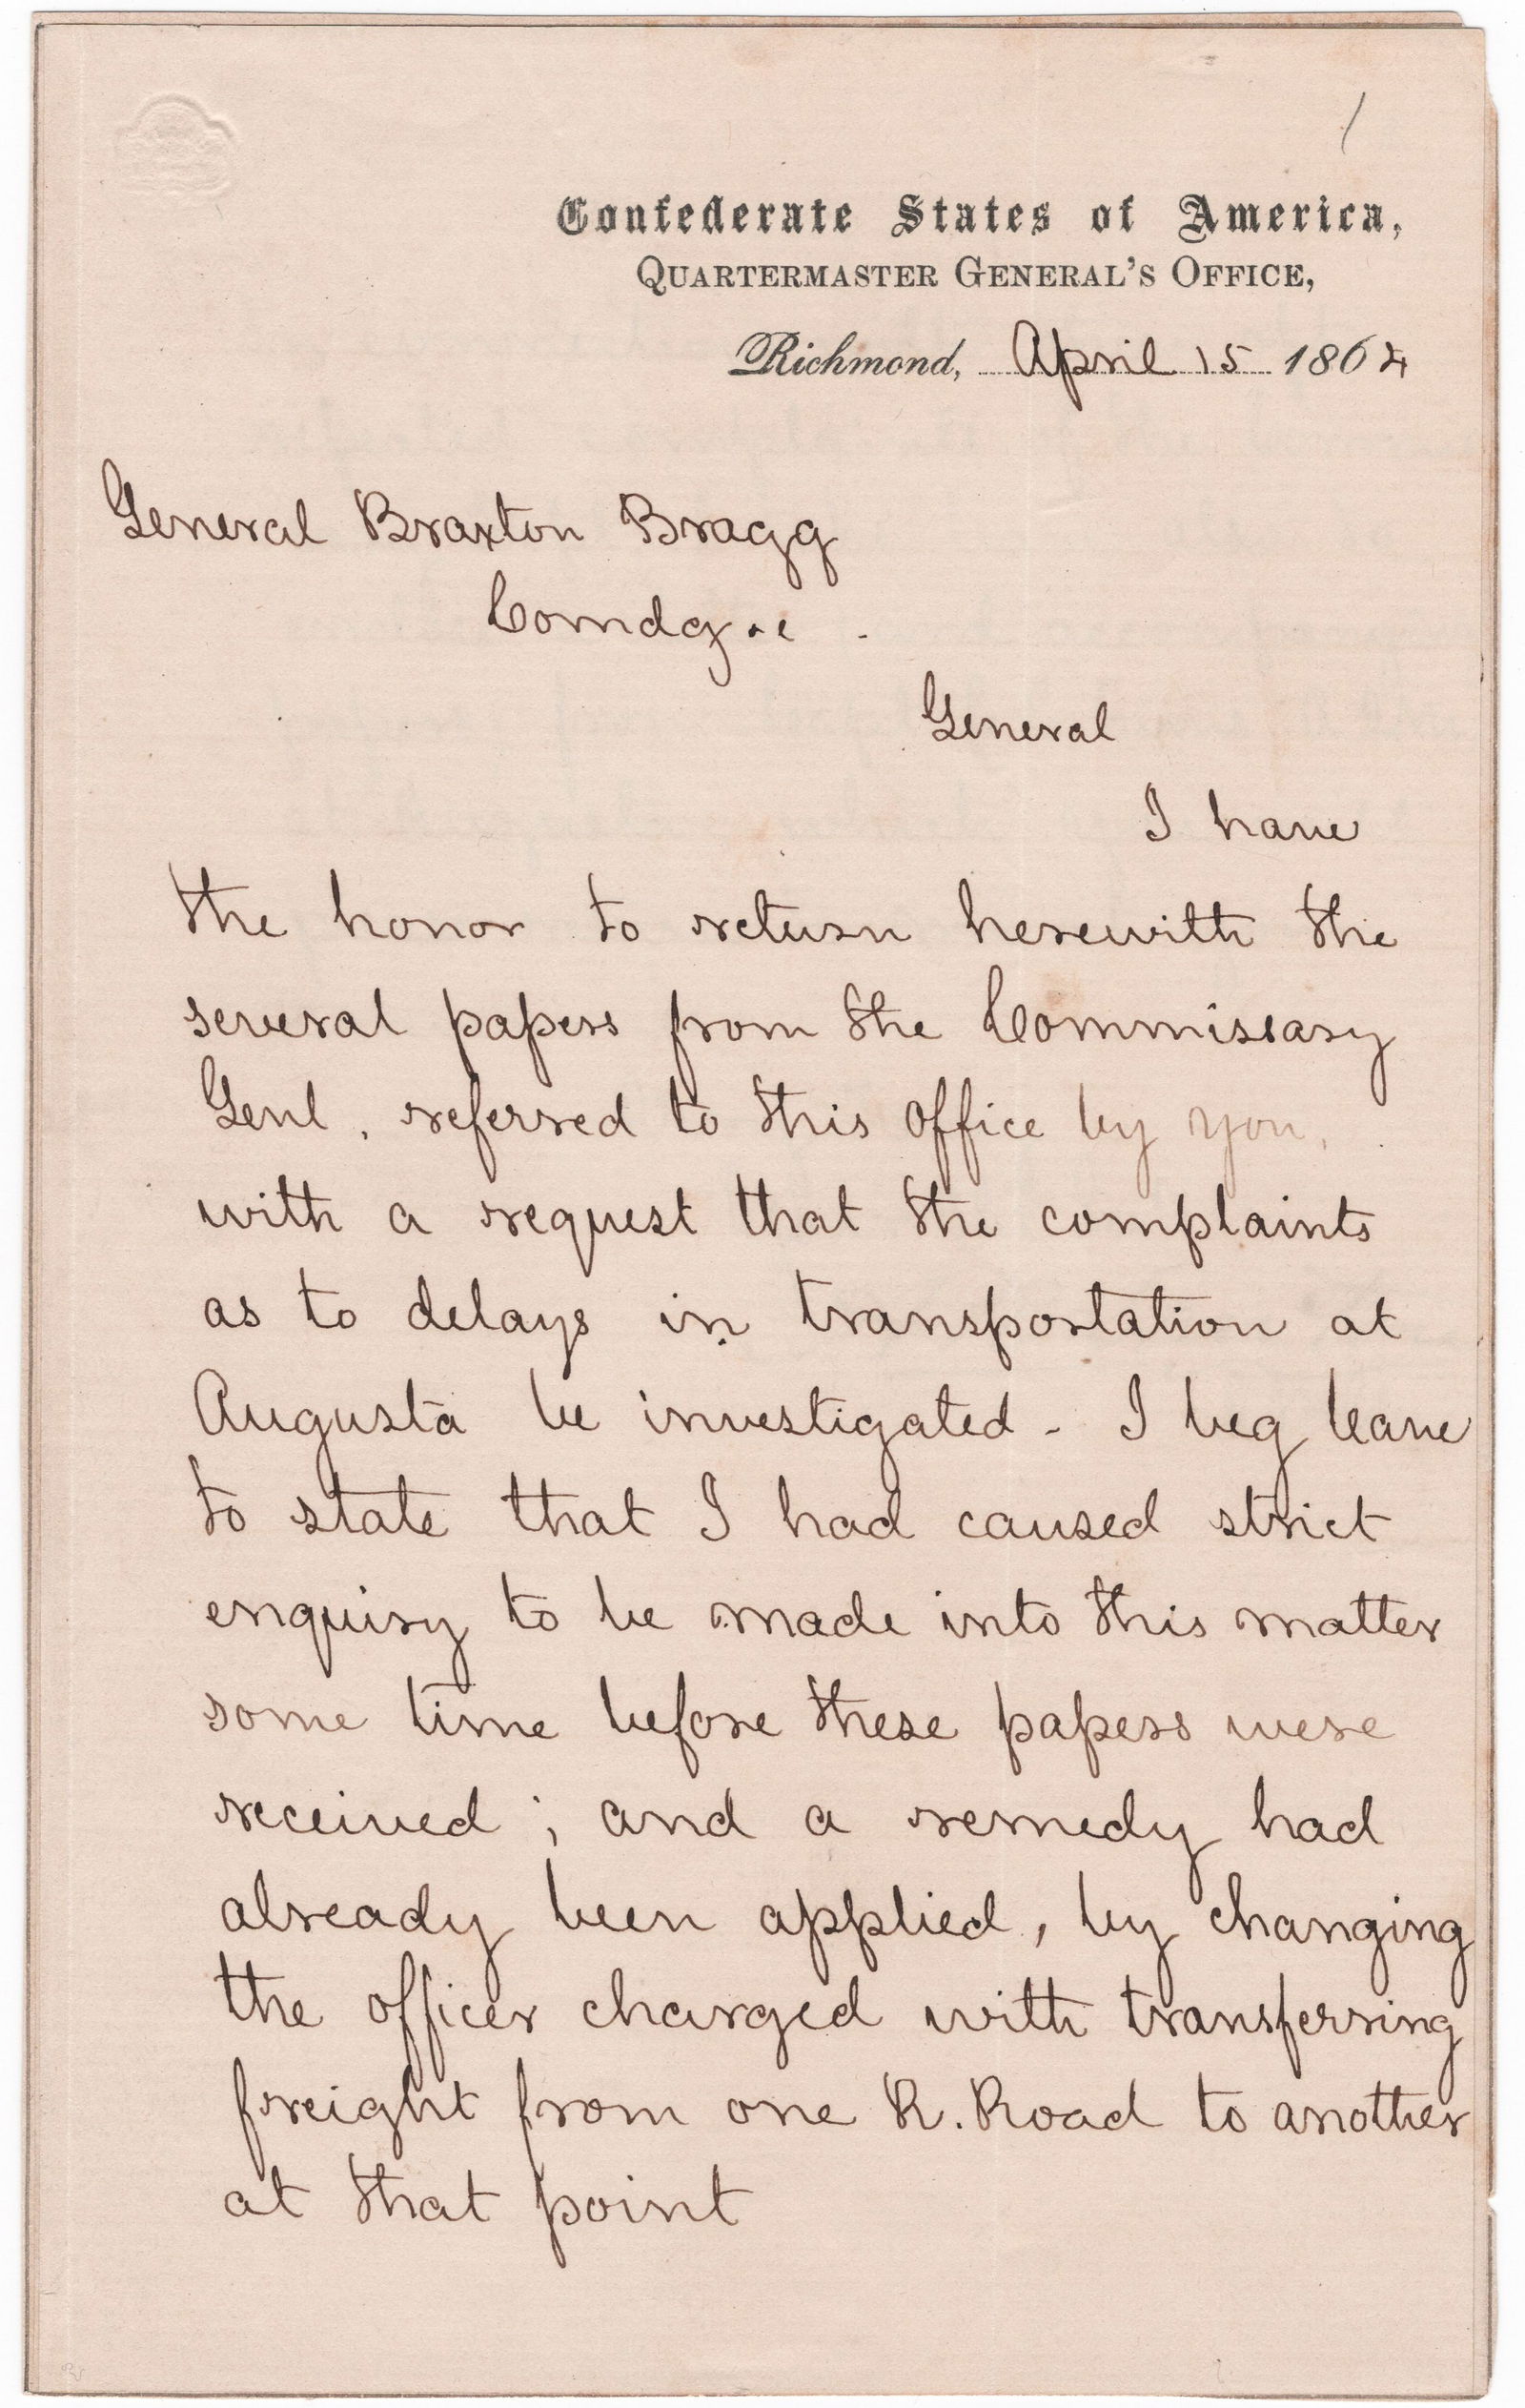 /
Confederate States of America,
Quartermaster General's Office,
Richmond, April 15 1864
General Braxton Bragg
Comdg &c.
General
I have
the honor to return herewith the
several papers from the Commissary
Genl, referred to this office by you,
with a request that the complaints
as to delays in transportation at
Augusta be investigated - I beg leave
to state that I had caused strict
enquiry to be made into this matter
some time before these papers were
received; and a remedy had
already been applied, by changing
the officer charged with transferring
freight from one R. Road to another
at that point